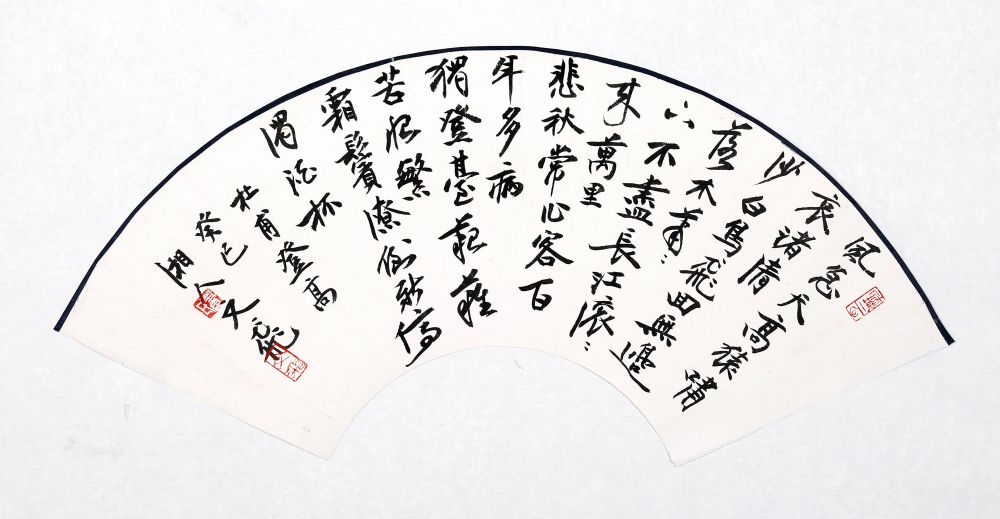 風急天高猿嘯
哀渚清
沙白鳥飛回無邊
落木蕭〻
下不盡長江滾〻
來萬里
悲秋常作客百
年多病
獨登臺艱難
苦恨繁
霜鬢潦倒新停
濁酒杯
杜甫登高
癸巳
湘人文